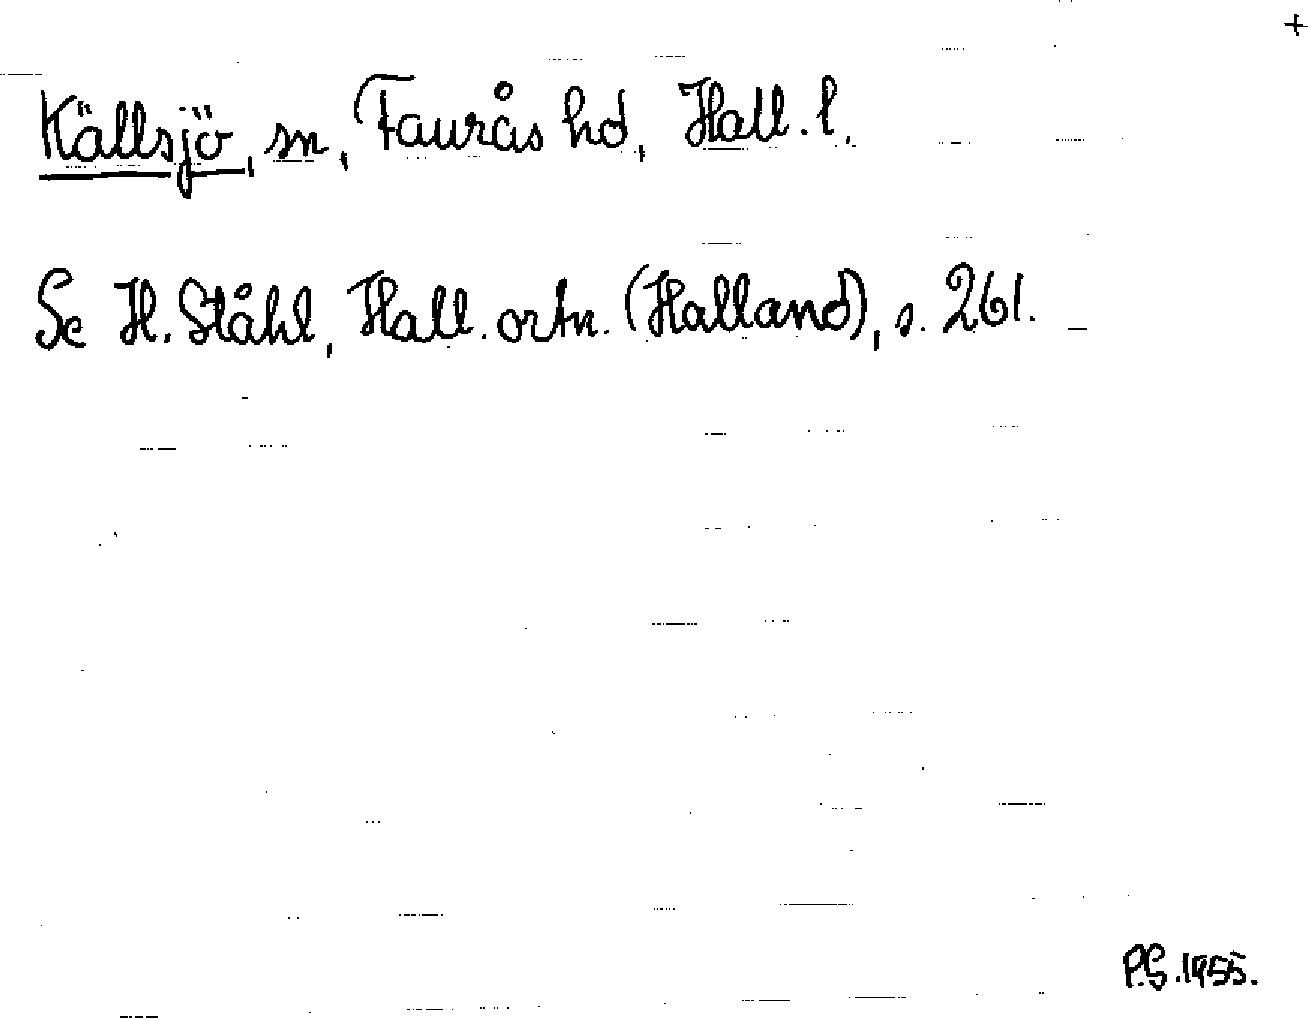 +
Källsjö, sn, Faurås hd, Hall. l.
Se H. Ståhl, Hall. ortn. (Halland), s. 261.
P.G. 1955.